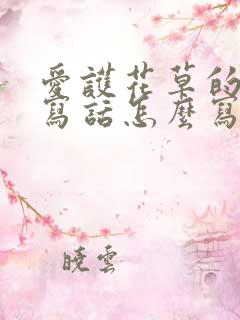 愛護花草的
寫話怎麼寫
曉雲